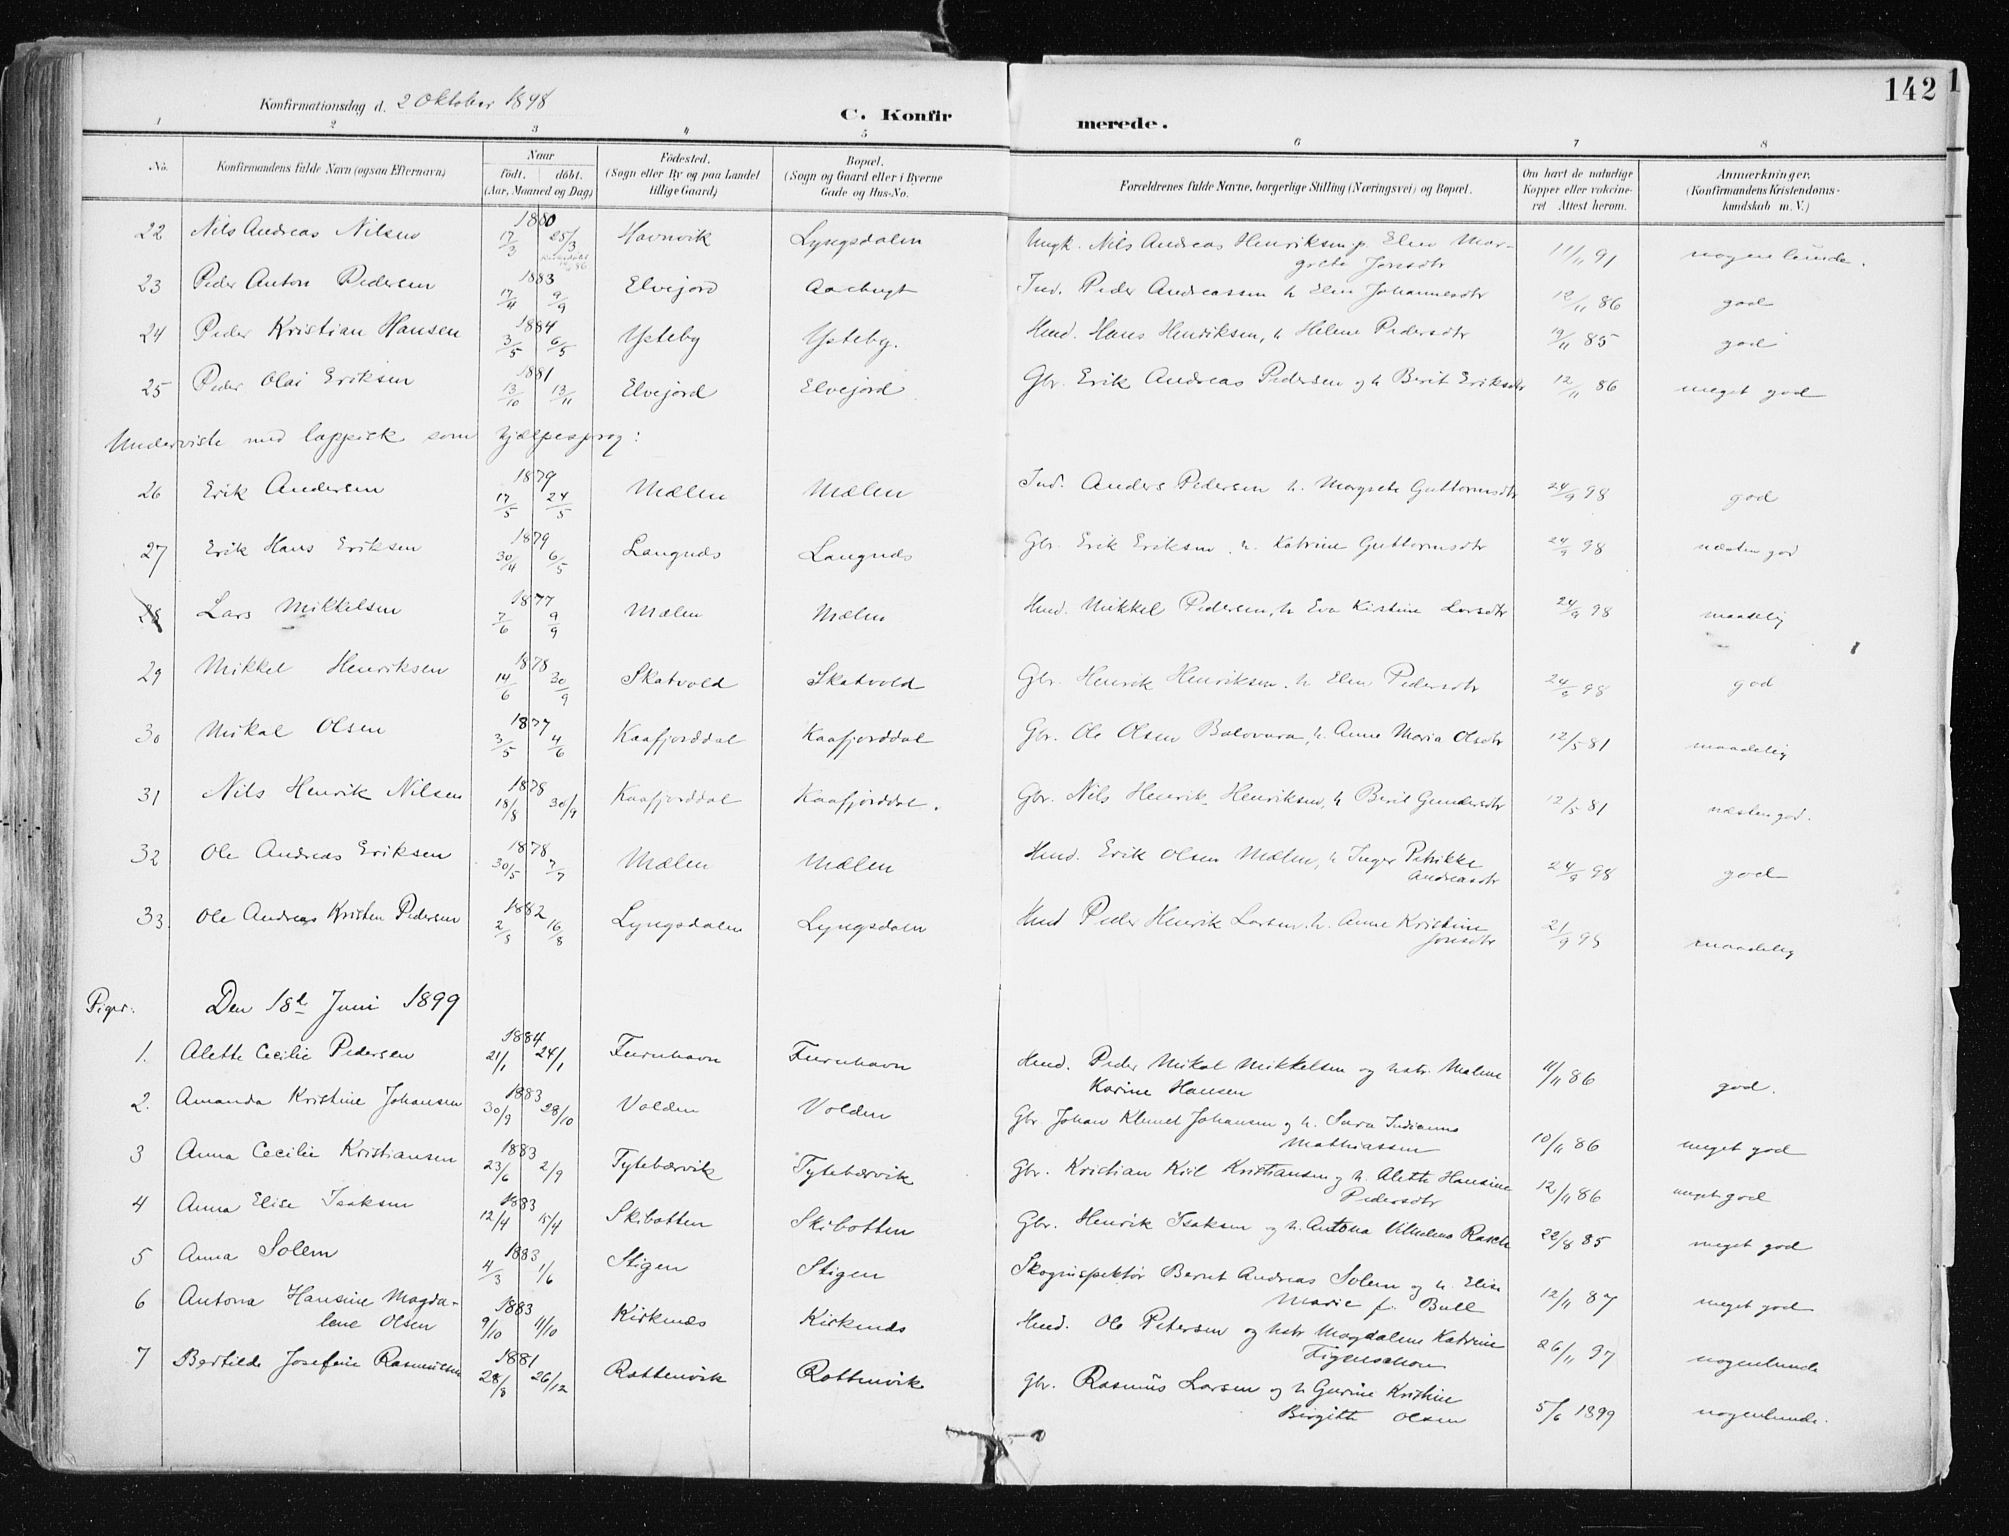 142
Konfirmationsdag d. 2 Oktober 1898
C. Konfirmerede.
1 2 3 4 5 6 7 8
No. Konfirmandens fulde Navn (ogsaa Efternavn) Naar födt. döbt. (Aar, Maaned og Dag) Födested. (Sogn eller By og paa Landet tillige Gaard) Bopæl. (Sogn og Gaard eller i Byerne Gade og Hus-No. Forældrenes fulde Navne, borgerlige Stilling (Næringsvei) og Bopæl. Om havt de naturlige Kopper eller vakcineret Attest herom. Anmærkninger. (Konfirmandens Kristendomskundskab m. V.)
22 Nils Andreas Nilsen 1880 17/3 25/3 Havnvik Lyngsdalen Ungk. Nils Andreas Henriksen p. Elen Margrete Jonsdtr 11/11 91 nogenlunde.
23 Peder Anton Pedersen 1883 17/4 9/9 Elvejord Aarbugt Ind. Peder Andreassen h. Elen Johannesdtr 12/11 86 god
24 Peder Kristian Hansen 1884 3/5 6/5 Ysteby Ysteby. Hmd. Hans Henriksen, h Helene Pedersdtr 19/11 85 god
25 Peder Olai Eriksen 1881 13/10 13/11 Elvejord Elvejord Gbr. Erik Andreas Pedersen og h Berit Eriksdtr 12/11 86 meget god
Underviste med lappisk som hjælpesprog:
26 Erik Andersen 1879 17/5 24/5 Mælen Mælen Ind. Anders Pedersen h. Margrete Guttormsdtr 24/9 98 god
27 Erik Hans Eriksen 1879 30/4 6/5 Langnæs Langnæs Gbr. Erik Eriksen h. Katrine Guttormsdtr 24/9 98 næsten god
28 Lars Mikkelsen 1877 7/6 9/9 Mælen Mælen Hmd. Mikkel Pedersen, h Eva Kistine Larsdtr 24/9 98 maadelig
29 Mikkel Henriksen 1878 14/6 30/9 Skatvold Skatvold Gbr. Henrik Henriksen h Elen Pedersdtr 24/9 98 god
30 Mikal Olsen 1877 3/5 4/6 Kaafjorddal Kaafjorddal Gbr. Ole Olsen Balovara, h. Anne Maria Olsdtr 12/5 81 maadelig
31 Nils Henrik Nilsen 1878 18/8 30/9 Kaafjorddal Kaafjorddal. Gbr. Nils Henrik Henriksen, h Berit Gundersdtr 12/5 81 næsten god.
32 Ole Andreas Eriksen 1878 30/5 7/7 Mælen Mælen Hmd. Erik Olsen Mælen, h Inger Petrikke Andreasdtr 24/9 98 god
33. Ole Andreas Kristen Pedersen 1882 16/8 Lyngsdalen Lyngsdalen Hmd Peder Henrik Larsen. h. Anne Kristine Jonsdtr 21/9 maadelig
Piger. Den 18d Juni 1899
1. Alette Cecilie Pedersen 1884 21/1 24/1 Furuhavn Furuhavn Hmd. Peder Mikal Mikkelsen og hstr. Malene Karine Hansen 11/11 86 god.
2. Amanda Kristine Johansen 1883 30/9 28/10 Volden Volden Gbr Johan Klemet Johansen og h. Sara Indianna Mathiassen 10/11 86 meget god
3 Anna Cecilie Kristiansen 1883 23/6 2/9 Tytebærvik Tytebærvik Gbr. Kristian Kiil Kristiansen og h. Alette Hansine Pedersdtr 12/11 86 meget god
4 Anna Elise Isaksen 1883 12/4 15/4 Skibotten Skibotten Gbr. Henrik Isaksen og h. Antona Vilhelmine Rasch 22/8 85 meget god
5 Anna Solem 1883 4/3 1/6 Stigen Stigen Skoginspektør Bernt Andreas Solem og h. Elise Marie f. Bull 12/11 87 meget god
6 Antona Hansine Magdalene Olsen 1883 9/10 11/10 Kirknæs Kirknæs Hmd. Ole Petersen og hstr Magdalene Katrine Figenschou 26/11 97 nogenlunde
7 Bertilde Josefine Rasmussen 1881 28/8 26/12 Rottenvik Rottenvik Gbr. Rasmus Larsen og h Gurine Kristine Birgitte Olsen 5/6 1899 nogenlunde.